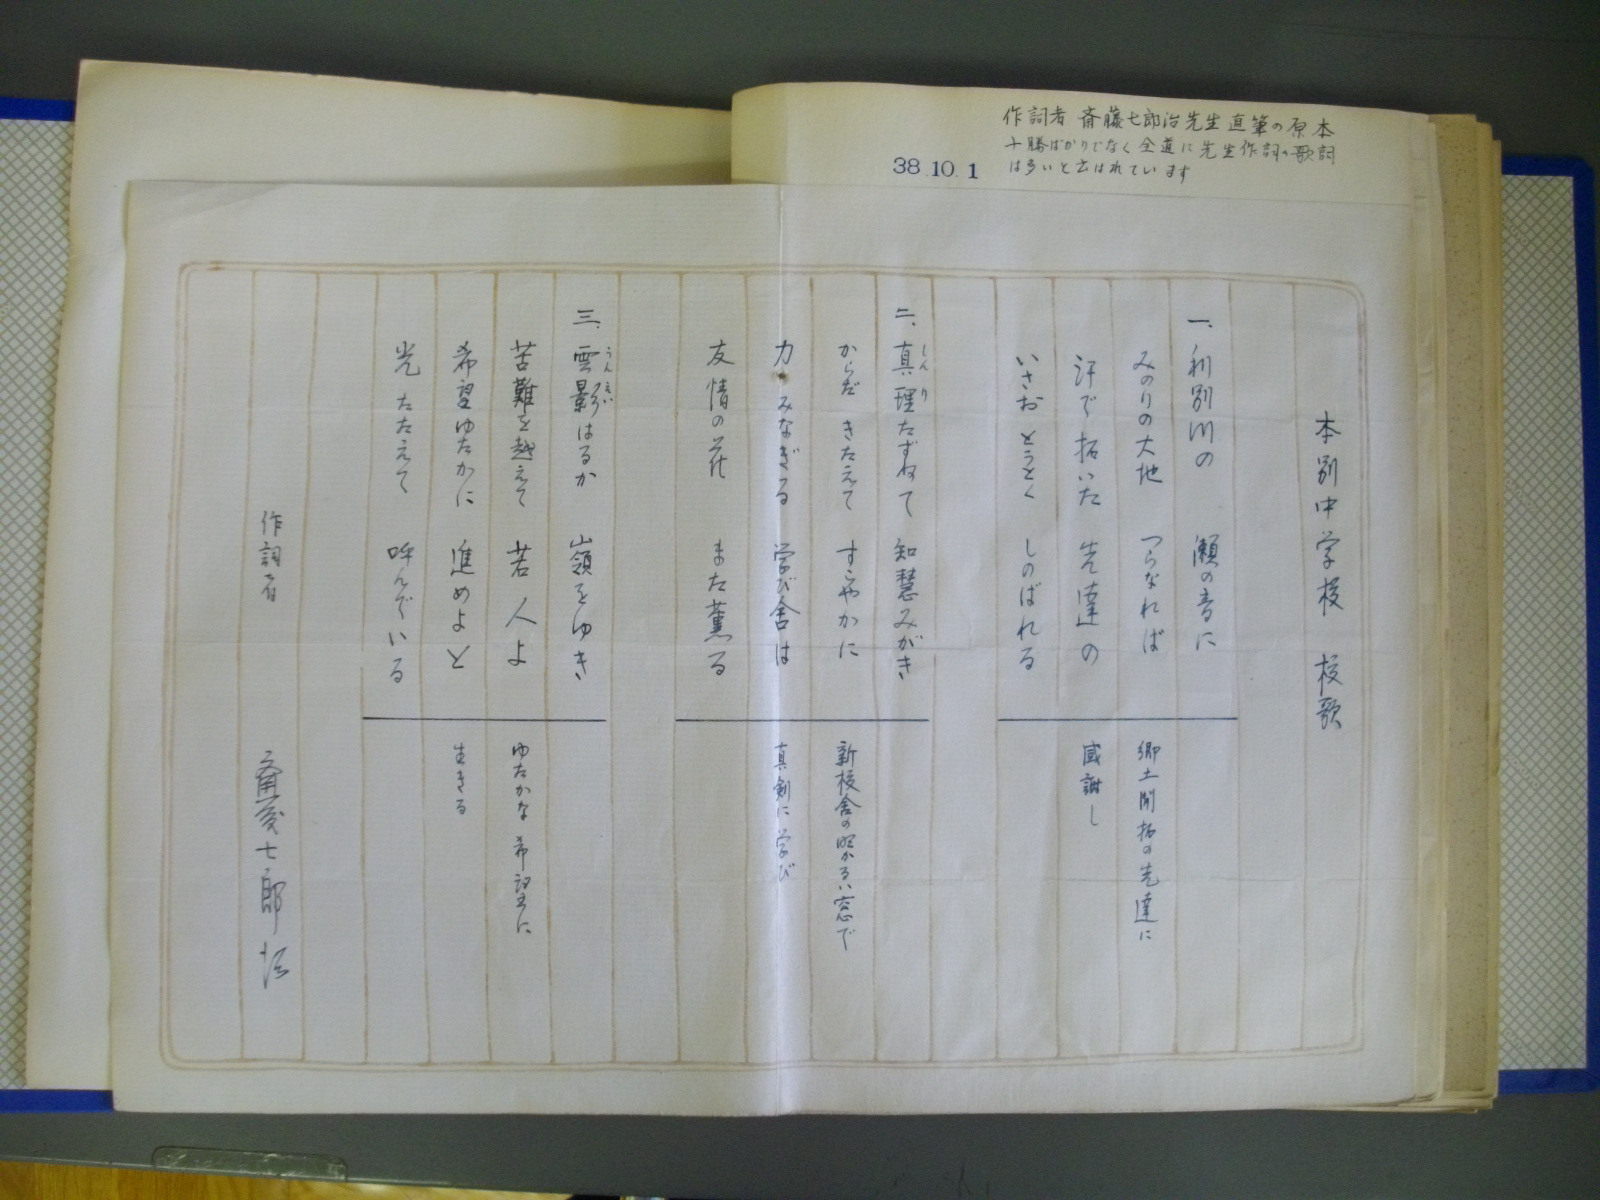 作詞者 斉藤七郎治先生直筆の原本
十勝ばかりでなく全道に先生作詞の歌詞
は多いと云はれています
38.10.1
本別中学校 校歌
一、利別川の 瀬の音に
みのりの大地 つらなれば
汗で拓いた 先達の
いさおとうとく しのばれる
郷土開拓の先達に
感謝し
二、真理たずねて 知慧みがき
しんり
からだきたえて すこやかに
力みなぎる 学び舎は
友情の花 また薫る
新校舎の明かるい窓で
真剣に学び
三、雲影はるか 山嶺をゆき
うんえい
苦難を越えて 若人よ
希望ゆたかに 進めよと
光たたえて 呼んでいる
ゆたかな希望に
生きる
作詞者 斉藤七郎治